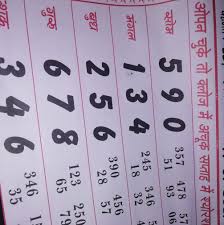 ओपन चुके तो क्लोज में अचूक सप्ताह में
5 9 0 357 478 57
51 93 06
मंगल 1 3 4 245 346
18 32
बुध 2 5 6 390 456
28 57
6 7 8 123 250
65 79
3 4 6 346
35